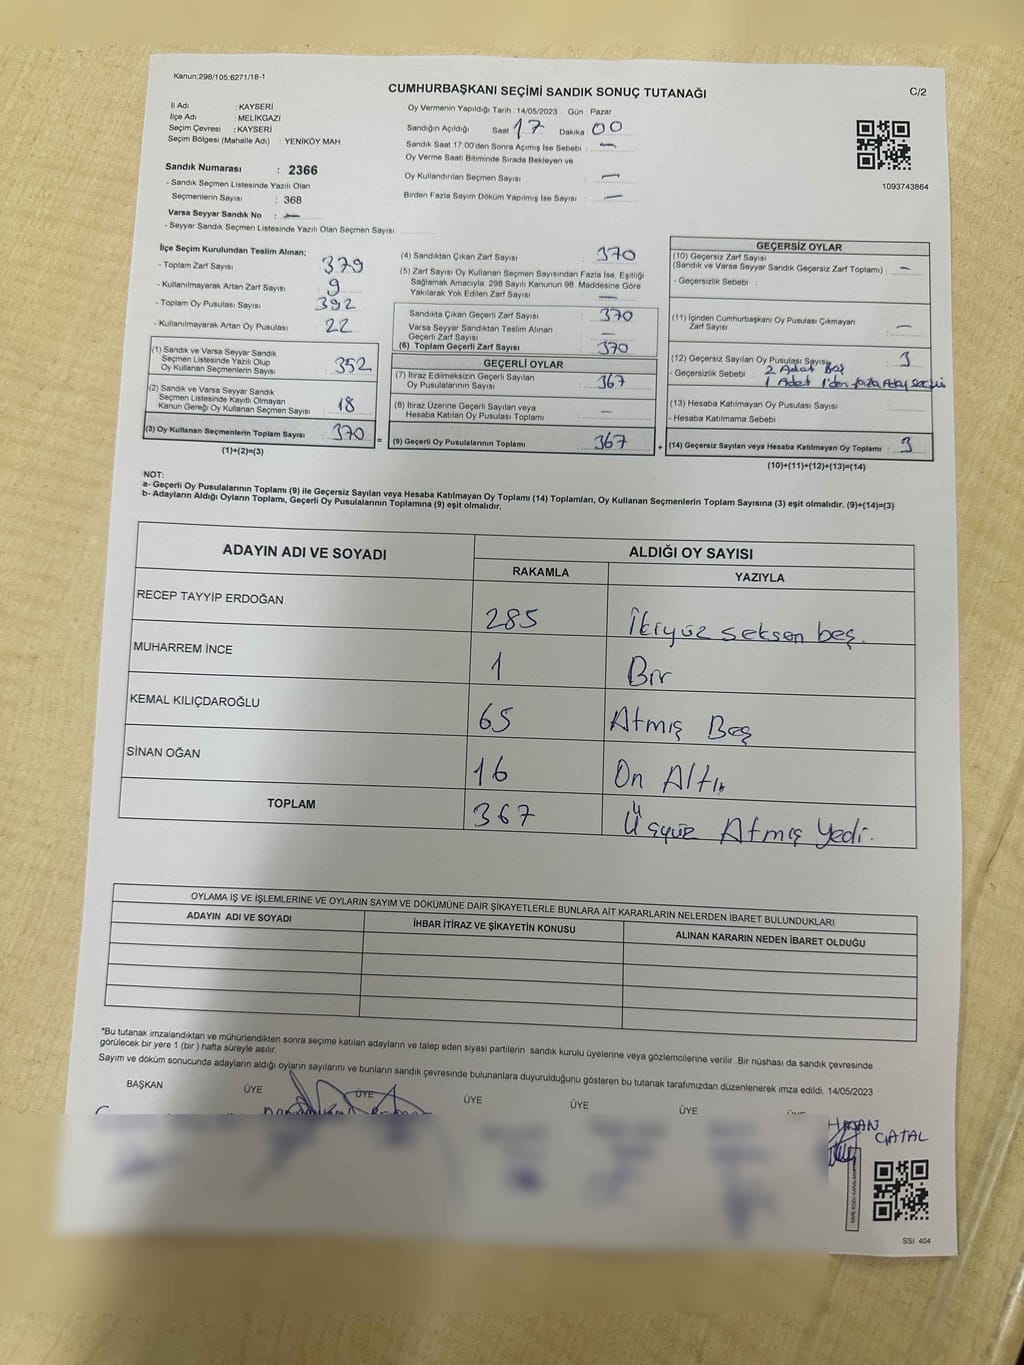 Kanun;298/105;6271/18-1
CUMHURBAŞKANI SEÇİMİ SANDIK SONUÇ TUTANAĞI
C/2
İl Adı : KAYSERİ
İlçe Adı : MELİKGAZİ
Seçim Çevresi : KAYSERİ
Seçim Bölgesi (Mahalle Adı) : YENİKÖY MAH.
Sandık Numarası : 2366
- Sandık Seçmen Listesinde Yazılı Olan
Seçmenlerin Sayısı : 368
Varsa Seyyar Sandık No : —
- Seyyar Sandık Seçmen Listesinde Yazılı Olan Seçmen Sayısı:
Oy Vermenin Yapıldığı Tarih : 14/05/2023 Gün : Pazar
Sandığın Açıldığı Saat 17 Dakika : 00
Sandık Saat 17:00'den Sonra Açımış İse Sebebi : —
Oy Verme Saati Bitiminde Sırada Bekleyen ve
Oy Kullandırılan Seçmen Sayısı : —
Birden Fazla Sayım Döküm Yapılmış İse Sayısı : —
1093743864
İlçe Seçim Kurulundan Teslim Alınan;
- Toplam Zarf Sayısı : 379
- Kullanılmayarak Artan Zarf Sayısı : 9
- Toplam Oy Pusulası Sayısı : 392
- Kullanılmayarak Artan Oy Pusulası : 22
(1) Sandık ve Varsa Seyyar Sandık
Seçmen Listesinde Yazılı Olup
Oy Kullanan Seçmenlerin Sayısı : 352
(2) Sandık ve Varsa Seyyar Sandık
Seçmen Listesinde Kayıtlı Olmayan
Kanun Gereği Oy Kullanan Seçmen Sayısı : 18
(3) Oy Kullanan Seçmenlerin Toplam Sayısı : 370 =
(1)+(2)=(3)
(4) Sandıktan Çıkan Zarf Sayısı : 370
(5) Zarf Sayısı Oy Kullanan Seçmen Sayısından Fazla İse, Eşitliği
Sağlamak Amacıyla; 298 Sayılı Kanunun 98. Maddesine Göre
Yakılarak Yok Edilen Zarf Sayısı : —
Sandıkta Çıkan Geçerli Zarf Sayısı : 370
Varsa Seyyar Sandıktan Teslim Alınan
Geçerli Zarf Sayısı : —
(6) Toplam Geçerli Zarf Sayısı : 370
GEÇERLİ OYLAR
(7) İtiraz Edilmeksizin Geçerli Sayılan
Oy Pusulalarının Sayısı : 367
(8) İtiraz Üzerine Geçerli Sayılan veya
Hesaba Katılan Oy Pusulası Toplamı : —
(9) Geçerli Oy Pusulalarının Toplamı : 367 +
GEÇERSİZ OYLAR
(10) Geçersiz Zarf Sayısı
(Sandık ve Varsa Seyyar Sandık Geçersiz Zarf Toplamı) : —
- Geçersizlik Sebebi :
(11) İçinden Cumhurbaşkanı Oy Pusulası Çıkmayan
Zarf Sayısı : —
(12) Geçersiz Sayılan Oy Pusulası Sayısı : 3
- Geçersizlik Sebebi : 2 Adet Boş
1 Adet 1'den fazla Aday
(13) Hesaba Katılmayan Oy Pusulası Sayısı :
- Hesaba Katılmama Sebebi :
(14) Geçersiz Sayılan veya Hesaba Katılmayan Oy Toplamı : 3
(10)+(11)+(12)+(13)=(14)
NOT:
a- Geçerli Oy Pusulalarının Toplamı (9) ile Geçersiz Sayılan veya Hesaba Katılmayan Oy Toplamı (14) Toplamları, Oy Kullanan Seçmenlerin Toplam Sayısına (3) eşit olmalıdır. (9)+(14)=(3)
b- Adayların Aldığı Oyların Toplamı, Geçerli Oy Pusulalarının Toplamına (9) eşit olmalıdır.
ADAYIN ADI VE SOYADI
ALDIĞI OY SAYISI
RAKAMLA YAZIYLA
RECEP TAYYİP ERDOĞAN 285 İkiyüz seksen beş.
MUHARREM İNCE 1 Bir
KEMAL KILIÇDAROĞLU 65 Atmış Beş
SİNAN OĞAN 16 On Altı
TOPLAM 367 Üçyüz Atmış Yedi.
OYLAMA İŞ VE İŞLEMLERİNE VE OYLARIN SAYIM VE DÖKÜMÜNE DAİR ŞİKAYETLERLE BUNLARA AİT KARARLARIN NELERDEN İBARET BULUNDUKLARI
ADAYIN ADI VE SOYADI İHBAR İTİRAZ VE ŞİKAYETİN KONUSU ALINAN KARARIN NEDEN İBARET OLDUĞU
*Bu tutanak imzalandıktan ve mühürlendikten sonra seçime katılan adayların ve talep eden siyasi partilerin sandık kurulu üyelerine veya gözlemcilerine verilir. Bir nüshası da sandık çevresinde
görülecek bir yere 1 (bir) hafta süreyle asılır.
Sayım ve döküm sonucunda adayların aldığı oyların sayılarını ve bunların sandık çevresinde bulunanlara duyurulduğunu gösteren bu tutanak tarafımızdan düzenlenerek imza edildi. 14/05/2023
BAŞKAN ÜYE ÜYE ÜYE ÜYE ÜYE
ÇATAL
SSI 404